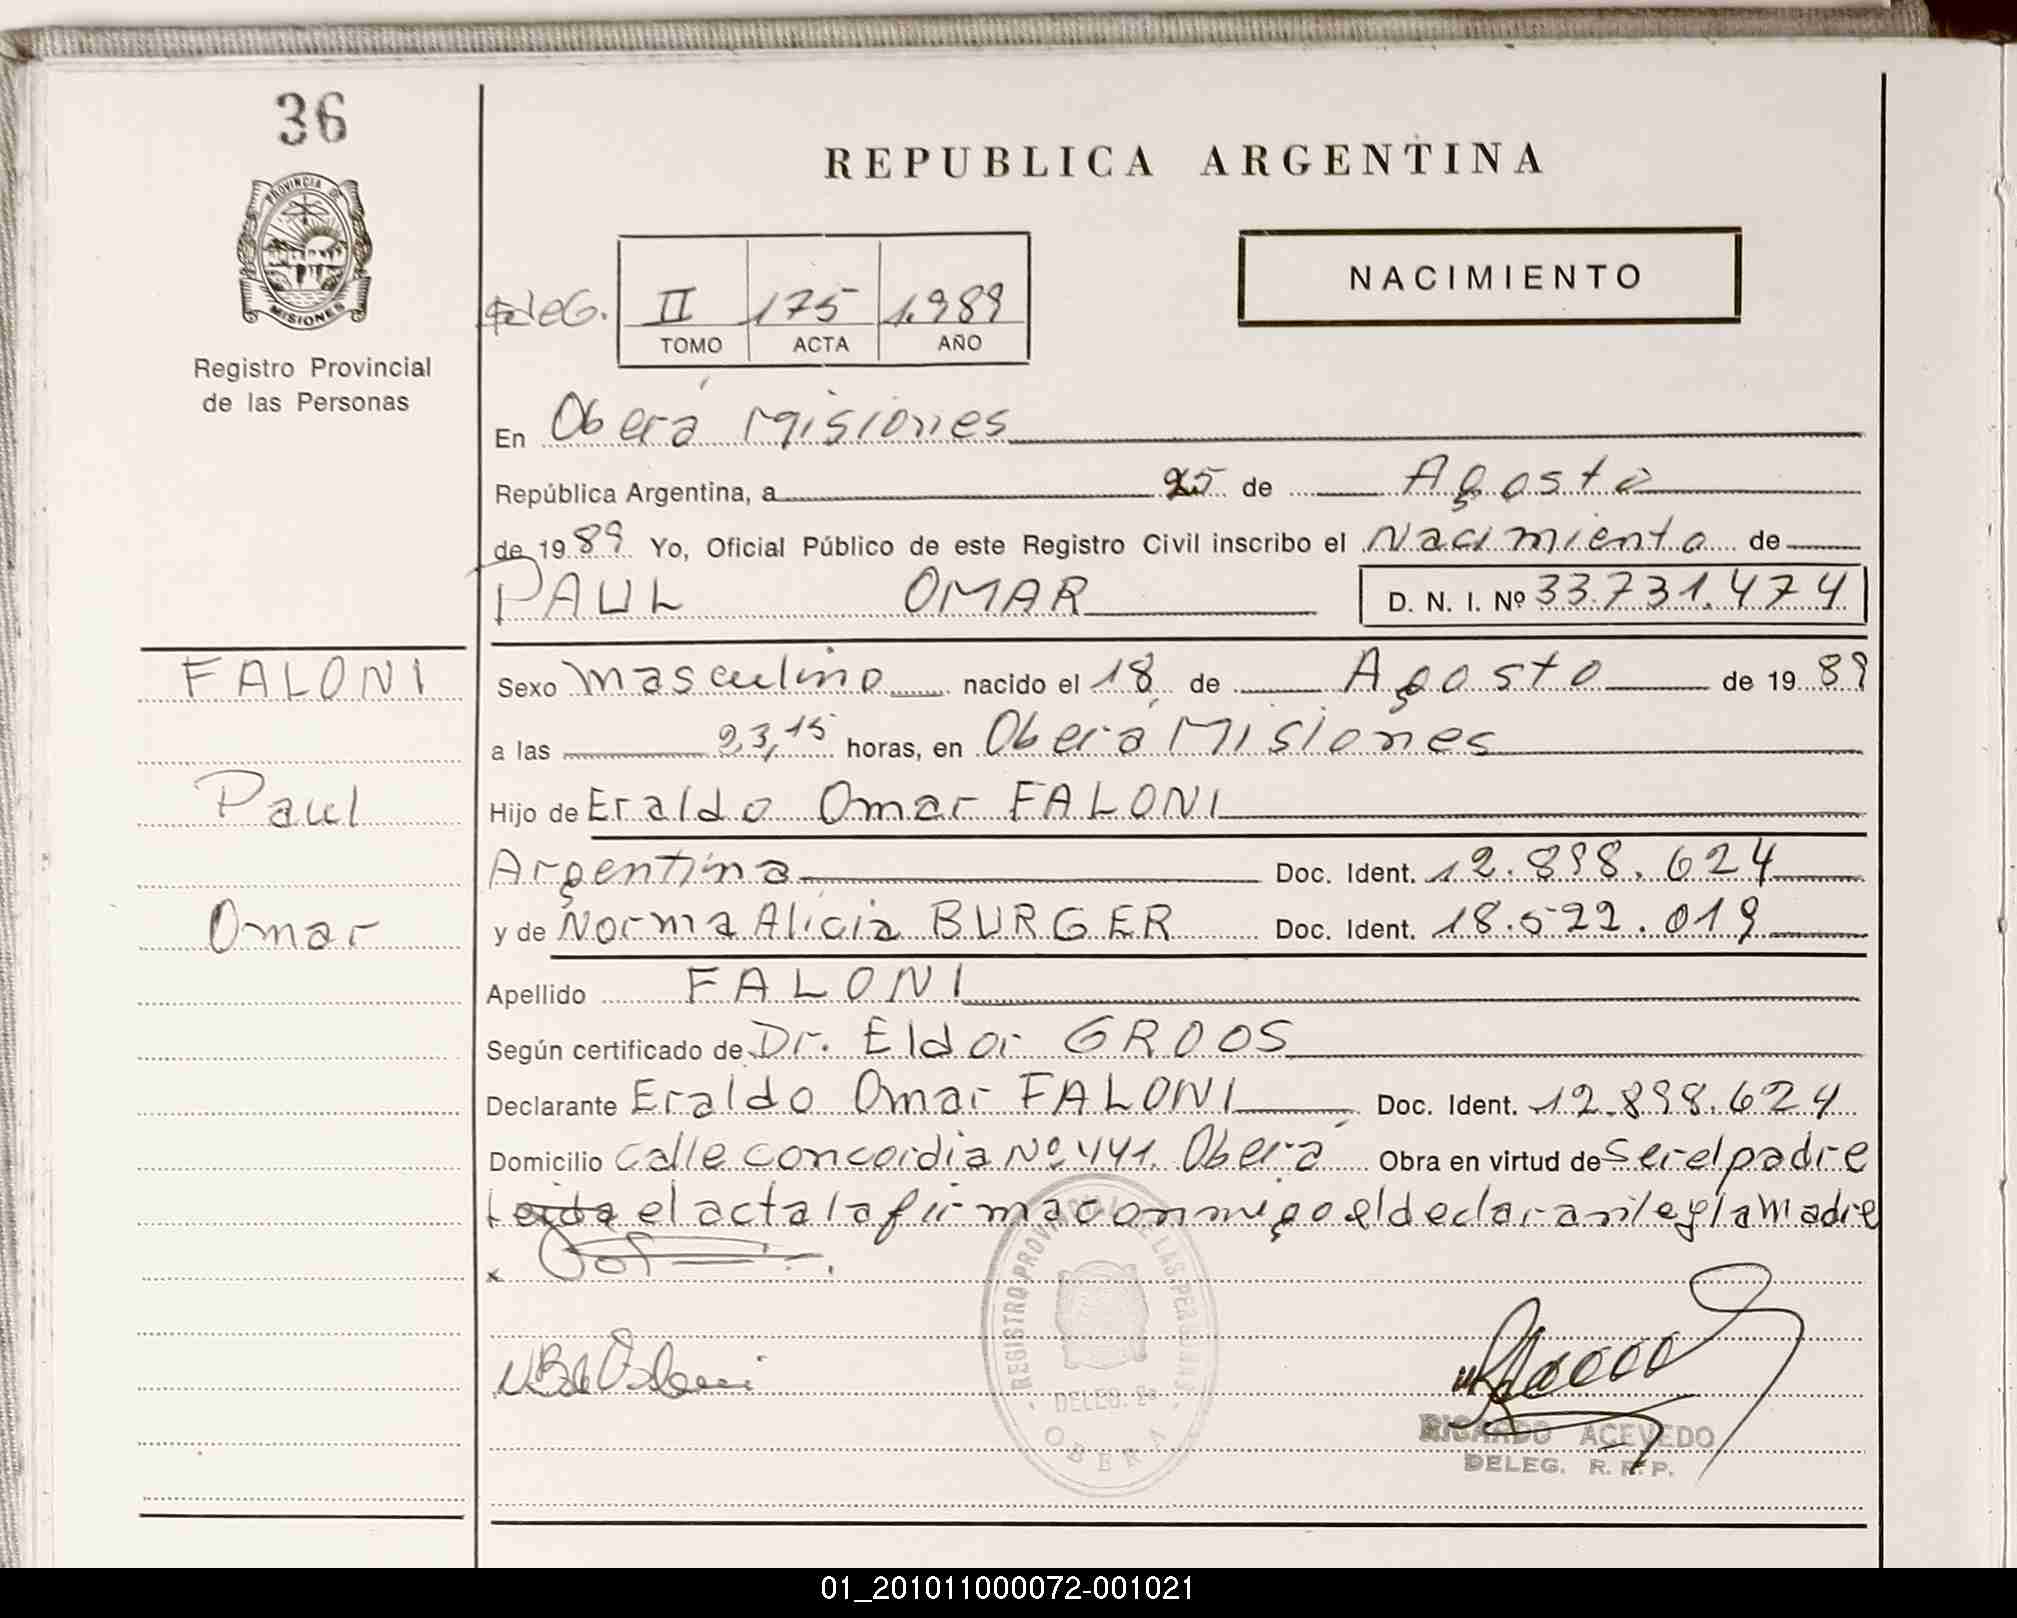 36
PROVINCIA DE
MISIONES
Registro Provincial
de las Personas
REPUBLICA ARGENTINA
NACIMIENTO
DeleG. II 175 1.989
TOMO ACTA AÑO
En Oberá Misiones
República Argentina, a 25 de Agosto
de 1989 Yo, Oficial Público de este Registro Civil inscribo el Nacimiento de
PAUL OMAR D. N. I. Nº 33.731.474
FALONI
Paul
Omar
Sexo masculino nacido el 18 de Agosto de 1989
a las 23,15 horas, en Oberá Misiones
Hijo de Eraldo Omar FALONI
Argentina Doc. Ident. 12.898.624
y de Norma Alicia BURGER Doc. Ident. 18.522.019
Apellido FALONI
Según certificado de Dr. Eldor GROOS
Declarante Eraldo Omar FALONI Doc. Ident. 12.898.624
Domicilio Calle Concordia Nº 441. Oberá Obra en virtud de Ser el padre
Leida el acta la firma conmigo el declarante y la Madre
REGISTRO PROVINCIAL DE LAS PERSONAS
DELEG. 2a
OBERA
RICARDO ACEVEDO
DELEG. R. P. P.
01_201011000072-001021